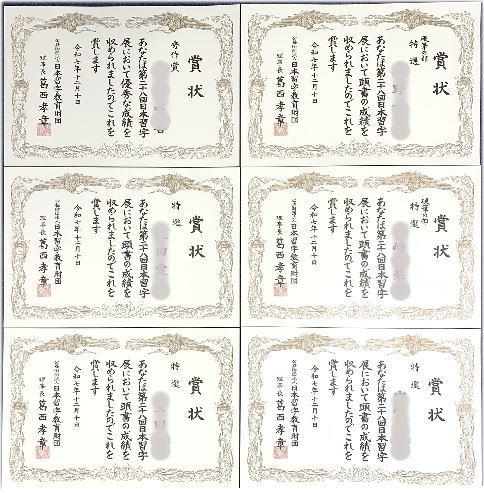 賞状
秀作賞
あなたは第二十八回日本習字
展において優秀な成績を
収められましたのでこれを
賞します
令和七年十二月十日
公益財団法人日本習字教育財団
理事長 葛西孝章
賞状
硬筆の部
特選
あなたは第二十八回日本習字
展において頭書の成績を
収められましたのでこれを
賞します
令和七年十二月十日
公益財団法人日本習字教育財団
理事長 葛西孝章
賞状
特選
あなたは第二十八回日本習字
展において頭書の成績を
収められましたのでこれを
賞します
令和七年十二月十日
公益財団法人日本習字教育財団
理事長 葛西孝章
賞状
硬筆の部
特選
あなたは第二十八回日本習字
展において頭書の成績を
収められましたのでこれを
賞します
令和七年十二月十日
公益財団法人日本習字教育財団
理事長 葛西孝章
賞状
特選
あなたは第二十八回日本習字
展において頭書の成績を
収められましたのでこれを
賞します
令和七年十二月十日
公益財団法人日本習字教育財団
理事長 葛西孝章
賞状
特選
あなたは第二十八回日本習字
展において頭書の成績を
収められましたのでこれを
賞します
令和七年十二月十日
公益財団法人日本習字教育財団
理事長 葛西孝章